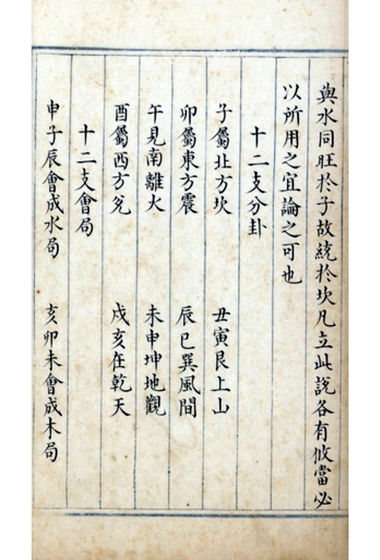 與水同旺於子故統於坎凡立此說各有攸當必
以所用之宜論之可也
十二支分卦
子屬北方坎 丑寅艮上山
卯屬東方震 辰巳巽風間
午見南離火 未申坤地觀
酉屬西方兌 戍亥在乾天
十二支會局
申子辰會成水局 亥卯未會成木局